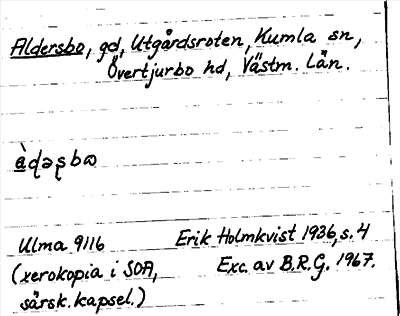 Aldersbo, gd, Utgårdsroten, Kumla sn,
Övertjurbo hd, Västm. Län.
àɖəʂbɷ
Ulma 9116 Erik Holmkvist 1936, s. 4
(xerokopia i SOA, Exc. av B.R.G. 1967.
särsk. kapsel.)